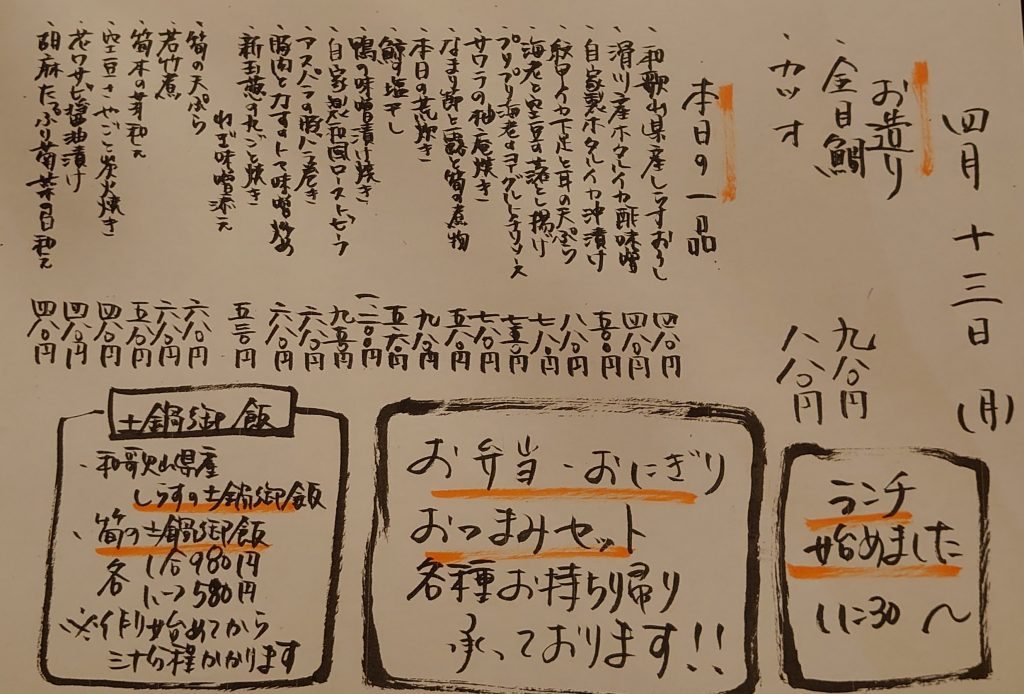 四月十三日(月)
お造り
・金目鯛 九八〇円
・カツオ 八八〇円
本日の一品
・和歌山県産しらすおろし 四八〇円
・滑川産ホタルイカ酢味噌 四八〇円
・自家製ホタルイカ沖漬け 五〇〇円
・紋甲イカ下足と耳の天ぷら 八八〇円
・海老と空豆の落とし揚げ 七八〇円
・プリプリ海老のヨーグルトチリソース 七五〇円
・サワラの柚庵焼き 七八〇円
・なまり節と蕗と筍の煮物 五八〇円
・本日の荒炊き 九八〇円
塩干し 五六〇円
・鴨の味噌漬け焼き 一、二〇〇円
・自家製和風ローストビーフ 九五〇円
・アスパラの豚バラ巻き 六八〇円
・豚肉と味噌炒め 六八〇円
・新玉葱の丸ごと焼き
ねぎ味噌添え 五三〇円
・筍の天ぷら 六八〇円
・若竹煮 六八〇円
・筍木の芽和え 五八〇円
・空豆さやごと炭火焼き 四八〇円
・花ワサビ醤油漬け 四八〇円
・胡麻たっぷり菊菜白和え 四八〇円
ランチ
始めました
11:30〜
お弁当・おにぎり
おつまみセット
各種お持ち帰り
承っております!!
土鍋御飯
・和歌山県産
しらすの土鍋御飯
・筍の土鍋御飯
各 1合980円
580円
※作り始めてから
三十分程かかります